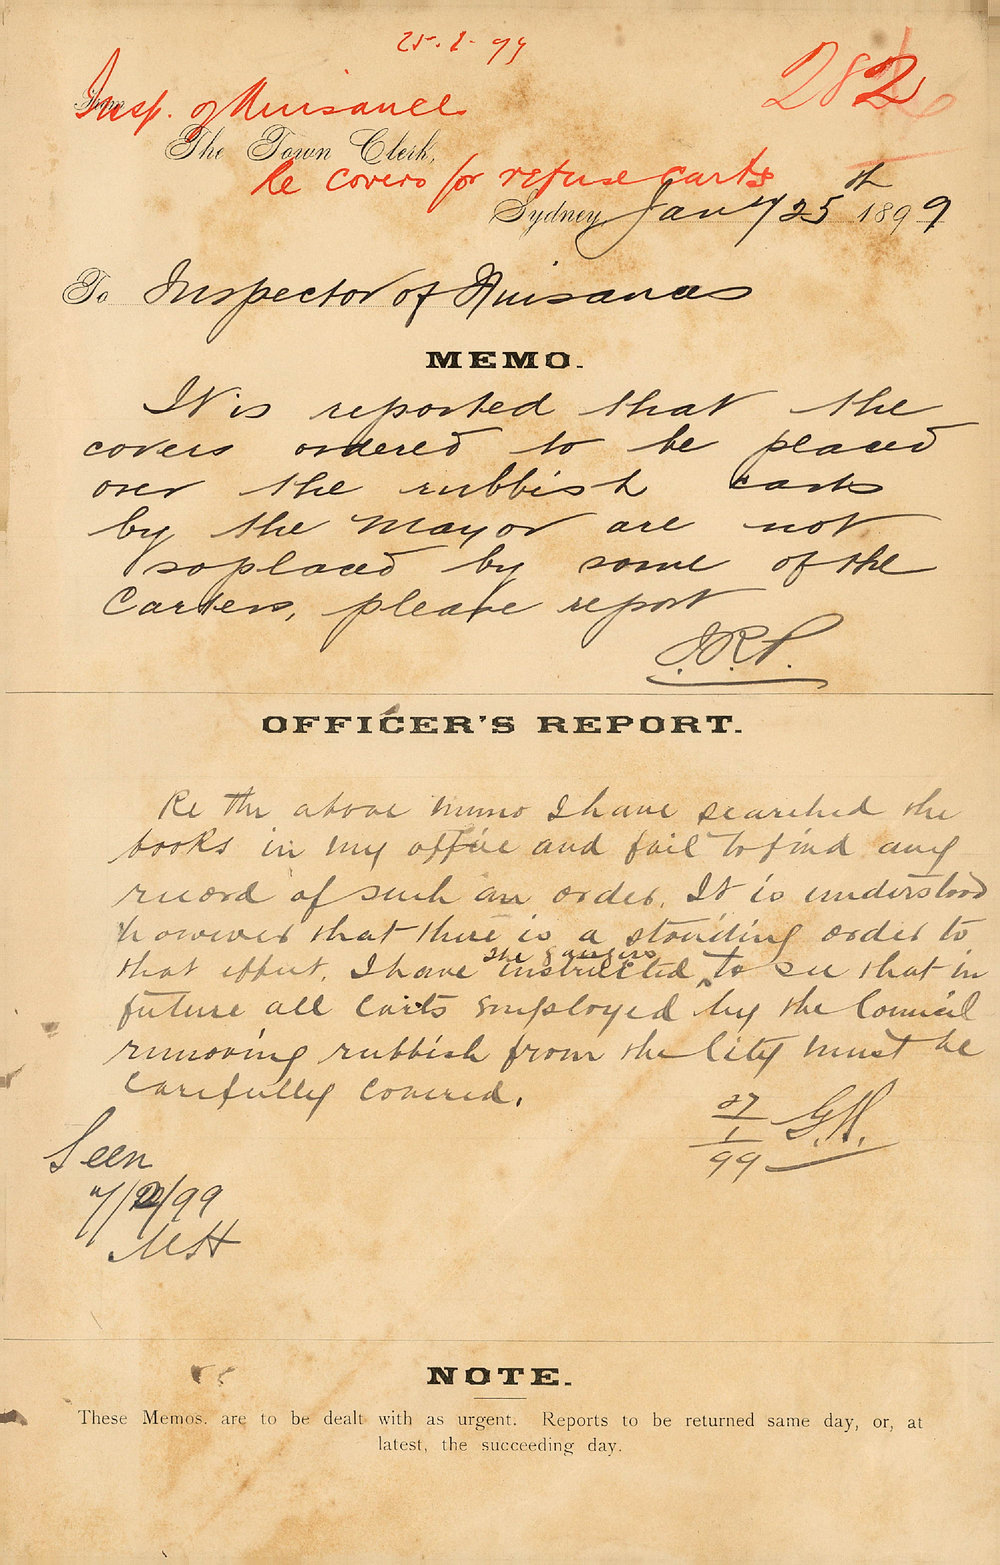 25.1.99
282
Insp. of Nuisances
From
The Town Clerk,
Re Covers for refuse carts
Sydney Jany 25th 1899
To Inspector of Nuisances
MEMO.
It is reported that the
covers ordered to be placed
over the rubbish carts
by the Mayor are not
so placed by some of the
Carters, please report
OFFICER'S REPORT.
Re the above memo I have searched the
books in my office and fail to find any
record of such an order. It is understood
however that there is a standing order to
that effect. I have instructed the gangers to see that in
future all carts employed by the Council
removing rubbish from the City must be
carefully covered.
27/1/99 G.H.
Seen
7/2/99
NOTE.
These Memos. are to be dealt with as urgent. Reports to be returned same day, or, at
latest, the succeeding day.